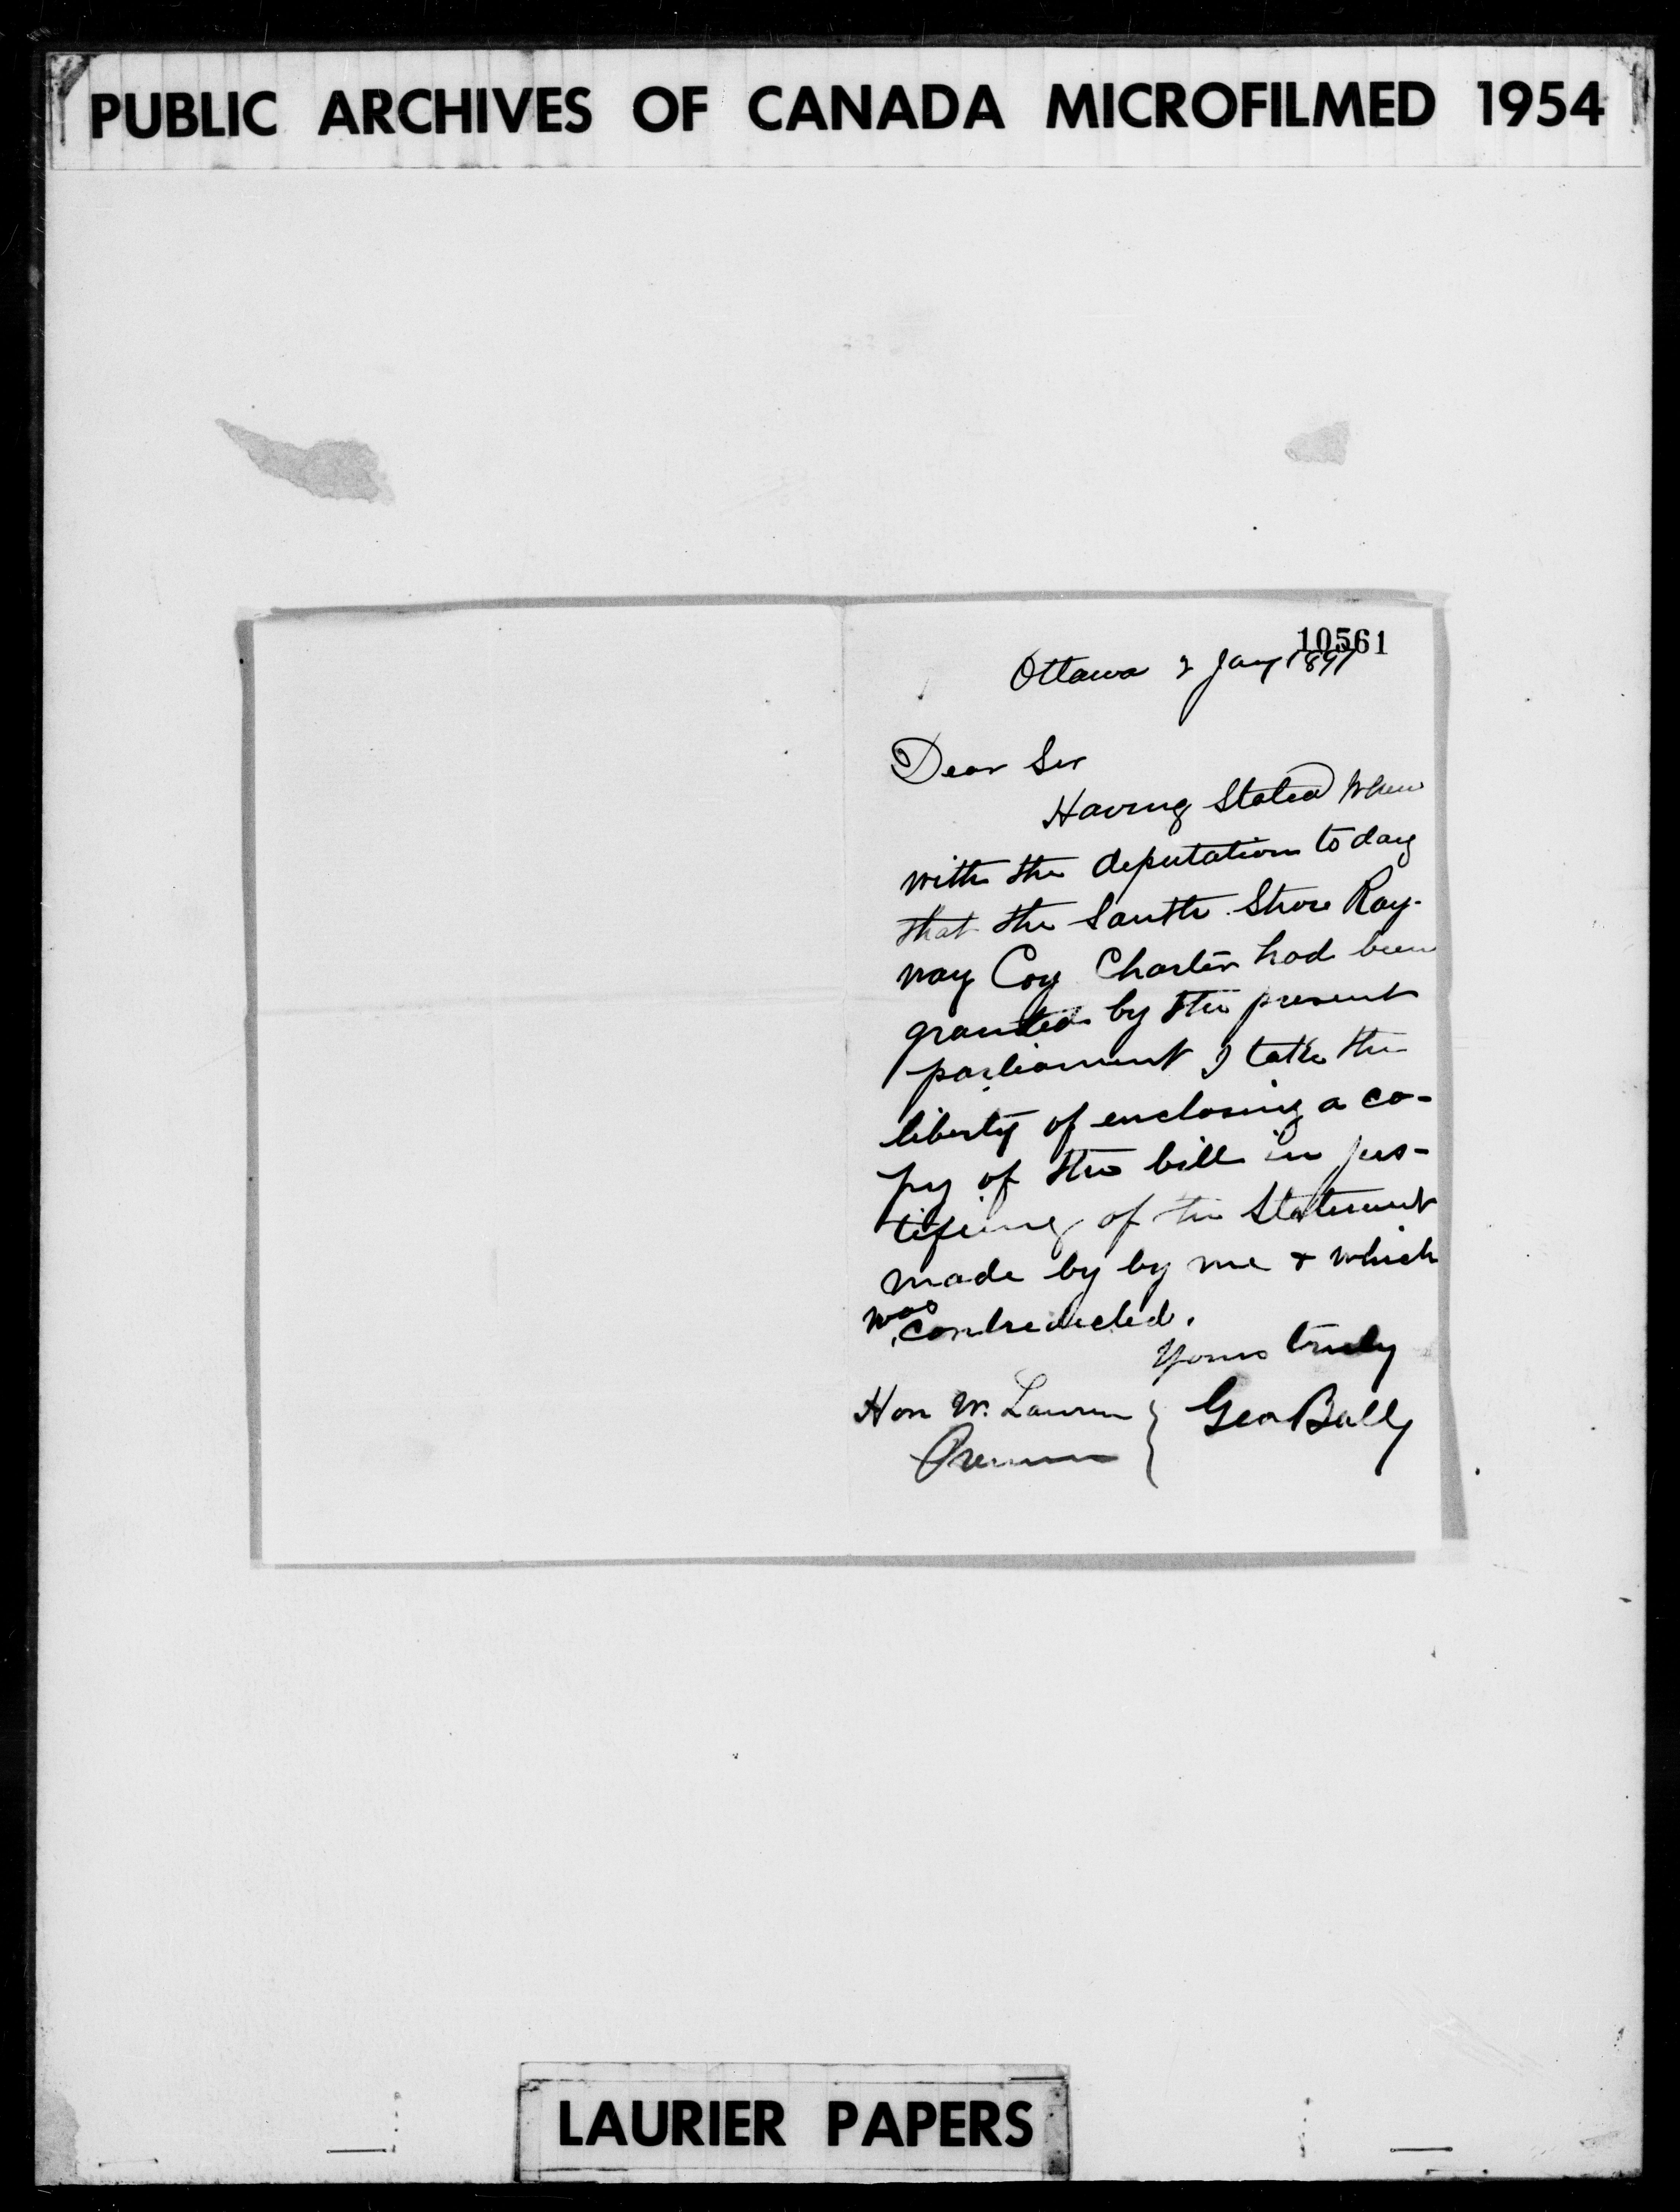 PUBLIC ARCHIVES OF CANADA MICROFILMED 1954
10561
Ottawa 2 Jany 1897
Dear Sir
Having stated when
with the deputation to day
that the South Shore Ray-
way Coy Charter had been
granted by the present
parliament I take the
liberty of enclosing a co-
py of the bill in jus-
tifying of the statement
made by by me & which
was contredicted.
Yours truly
Hon W. Laurier } Geo Ball
Premier
LAURIER PAPERS